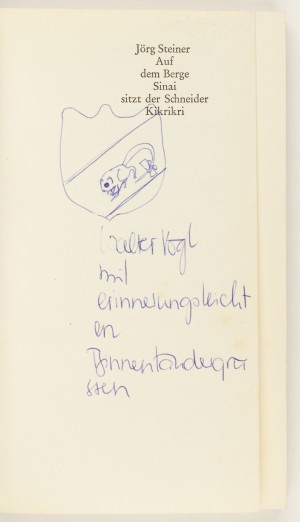 Jörg Steiner
Auf
dem Berge
Sinai
sitzt der Schneider
Kikrikri
Walter Vogt
mit
erinnerungsleicht
en
Binnenländergrü
ssen